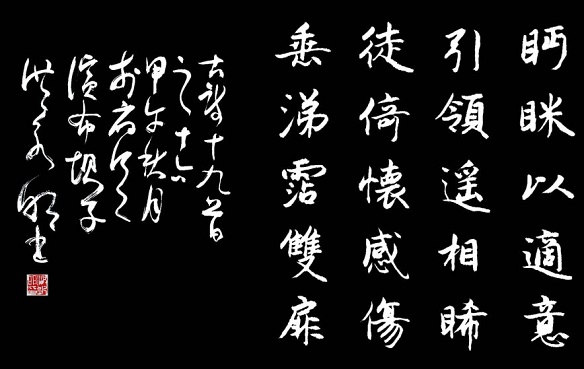 眄睐以適意
引領遥相睎
徒倚懷感傷
垂涕霑雙扉
古詩十九首
之十六
甲午秋月
濱布坝子
书